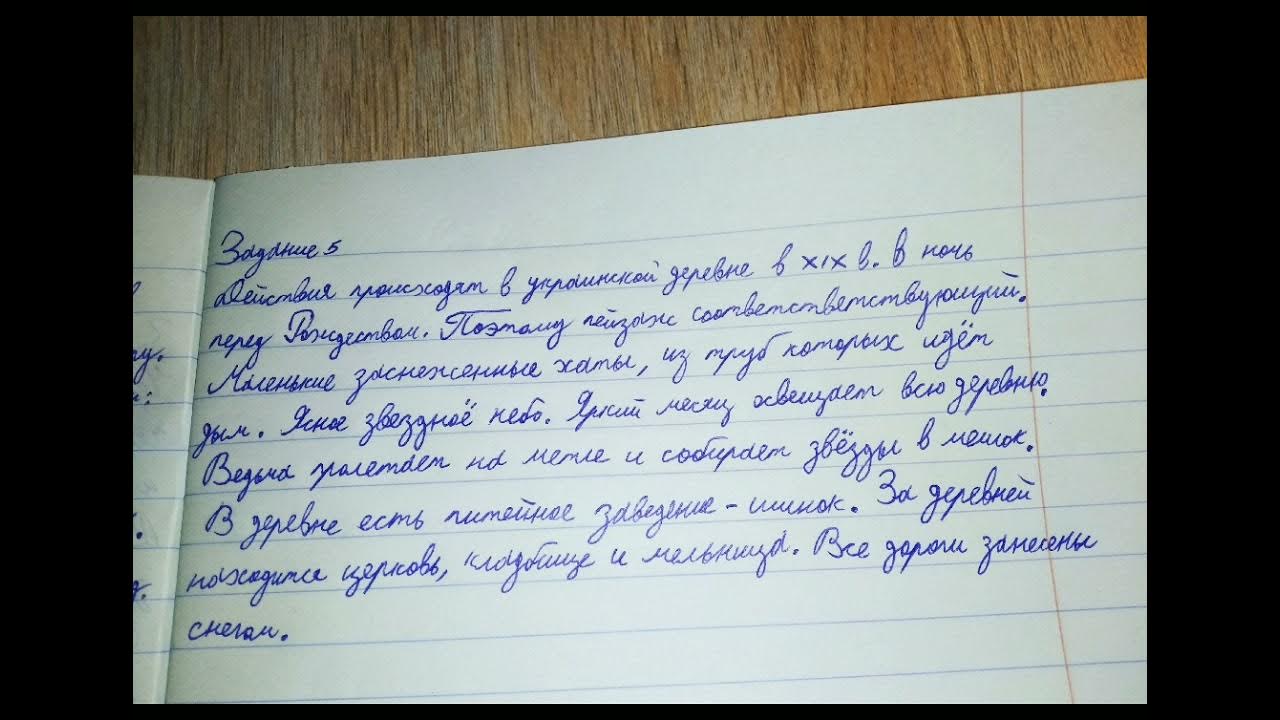 Задание 5
Действия происходят в украинской деревне в XIX в. В ночь
перед Рождеством. Поэтому пейзаж соответствествующий.
Маленькие заснеженные хаты, из труб которых идёт
дым. Ясное звездноё небо. Яркий месяц освещает всю деревню.
Ведьма пролетает на метле и собирает звёзды в мешок.
В деревне есть питейное заведение - шинок. За деревней
находится церковь, кладбище и мельница. Все дороги занесены
снегом.